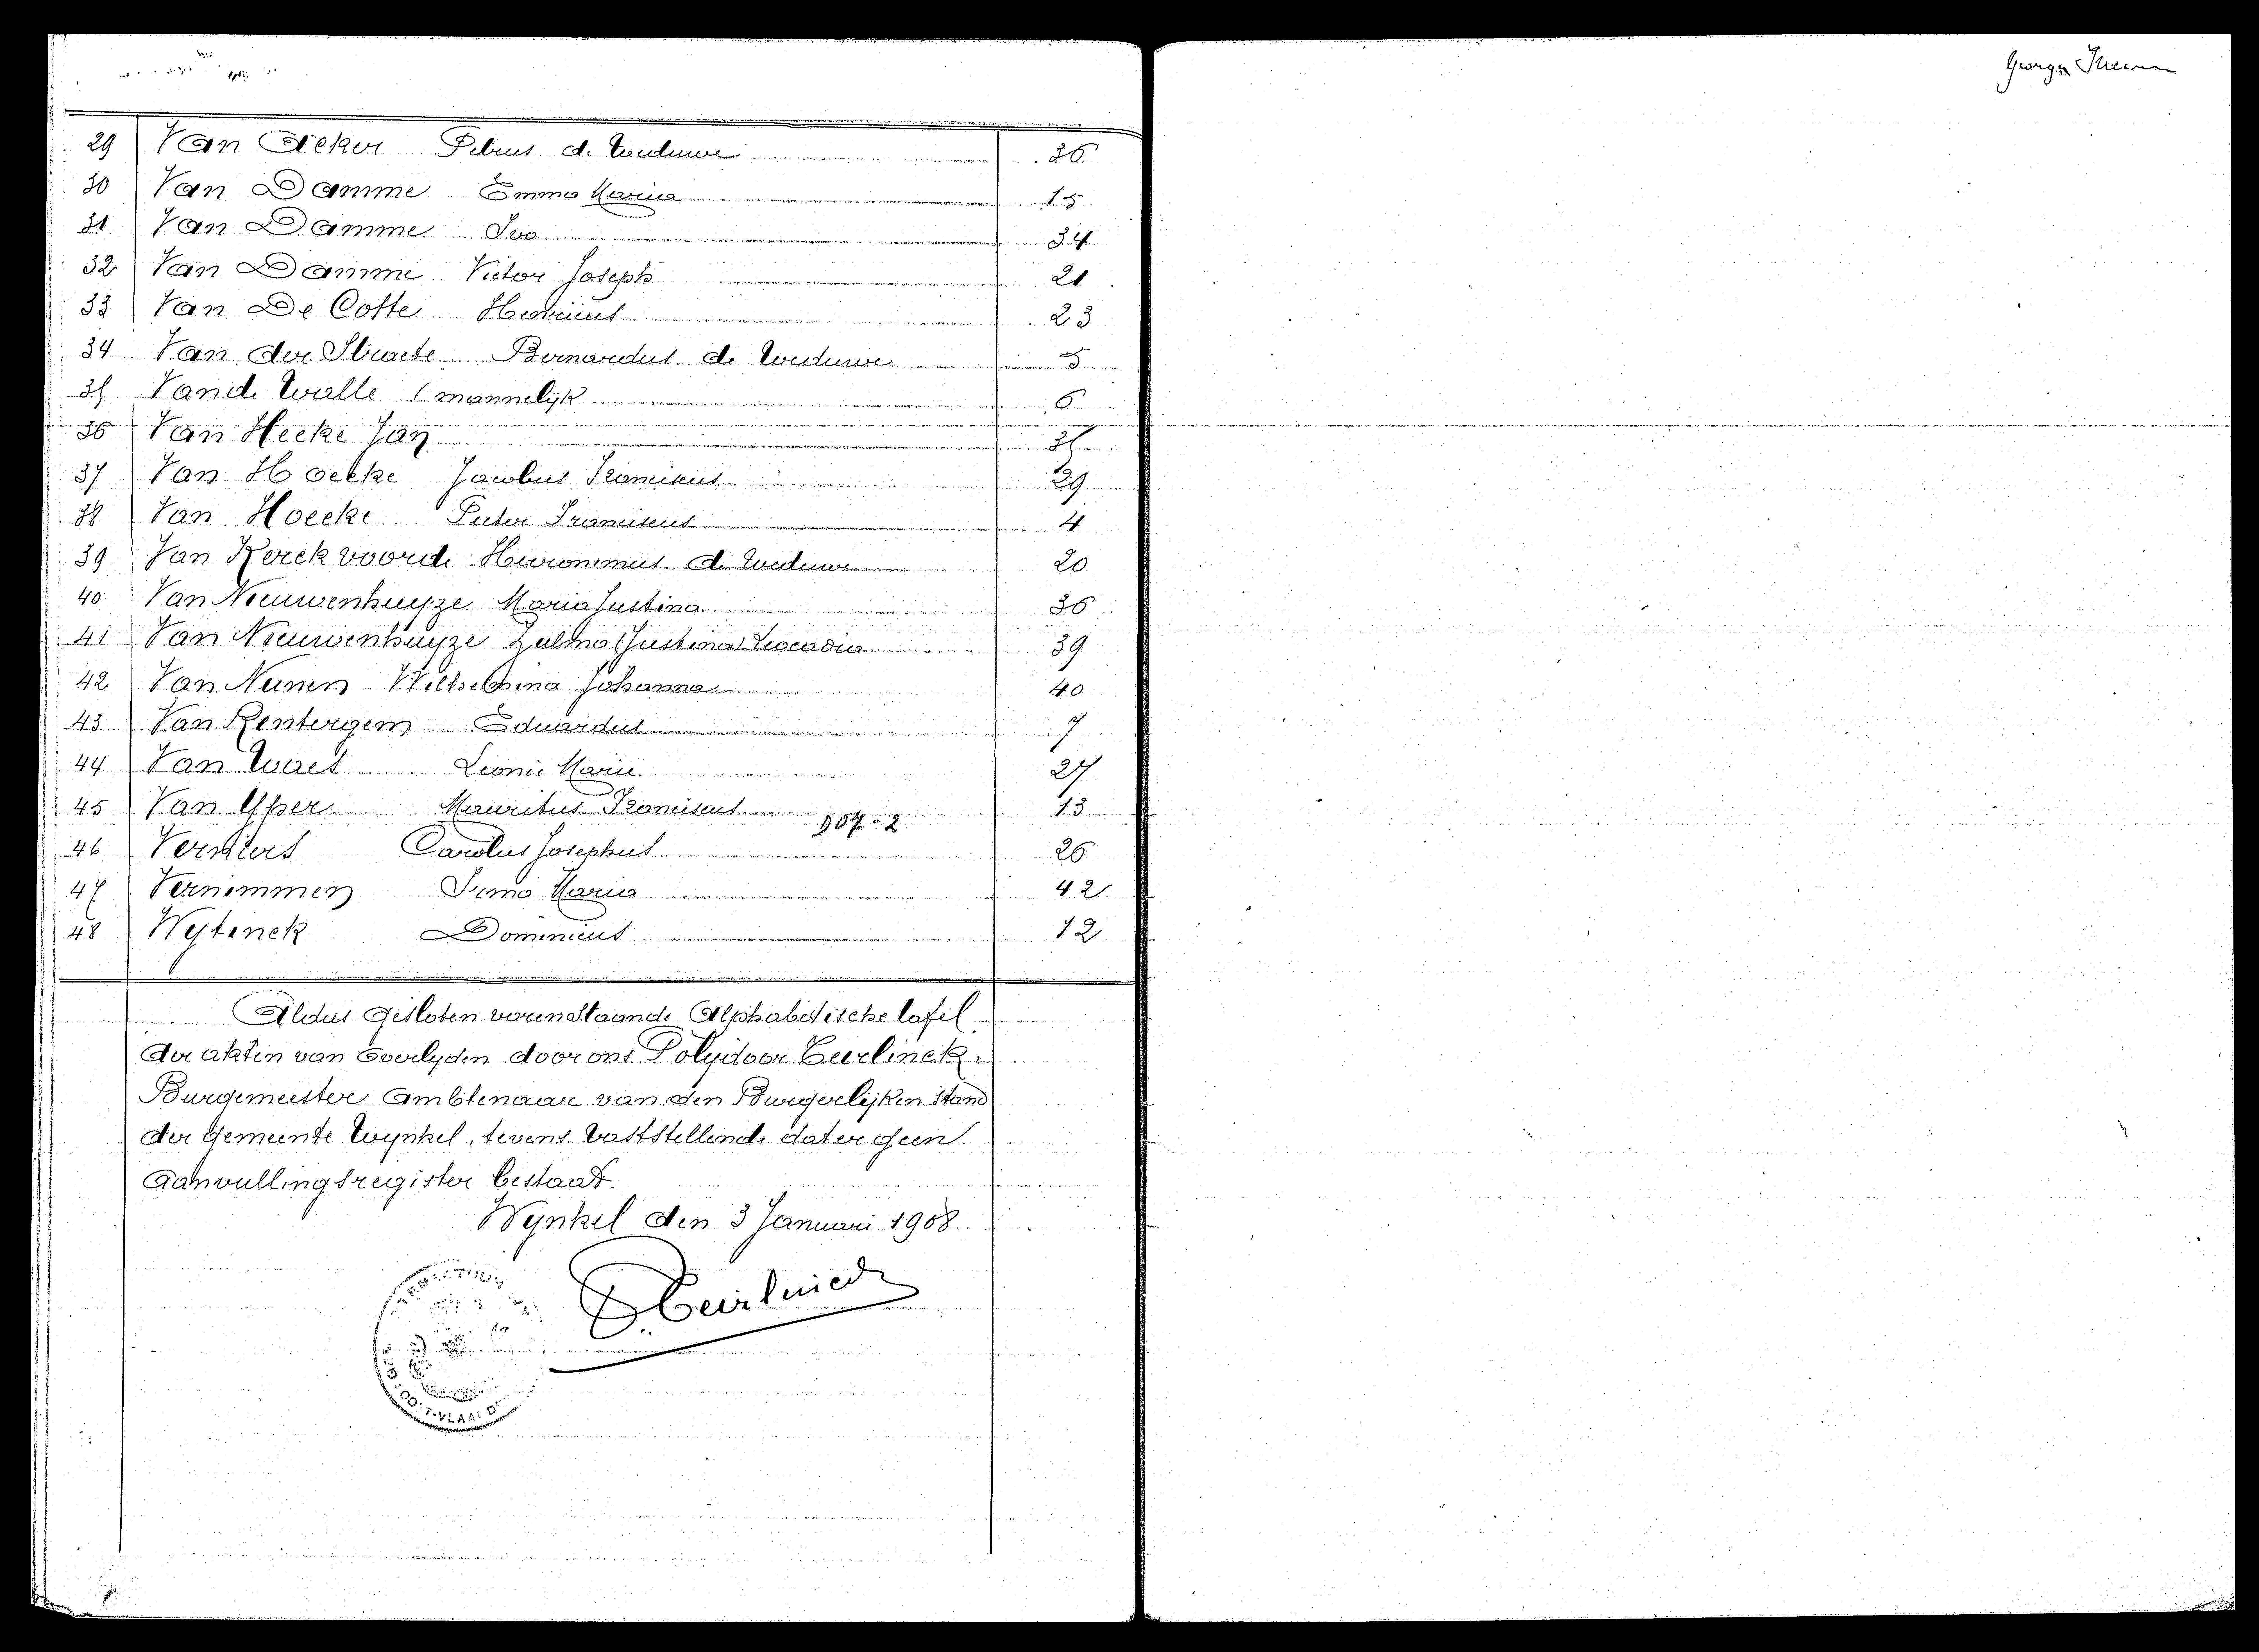 Georges
29 Van Acker Petrus de Weduwe 36
30 Van Damme Emma Maria 15
31 Van Damme Ivo 34
32 Van Damme Victor Joseph 21
33 Van De Cotte Henricus 23
34 Van der Straete Bernardus de Weduwe 5
35 Vande Walle (mannelijk 6
36 Van Hecke Jan 35
37 Van Hoecke Jacobus Franciscus 29
38 Van Hoecke Pieter Franciscus 4
39 Van Kerckvoorde Hieronimus de Weduwe 20
40 Van Nieuwenhuyze Maria Justina 36
41 Van Nieuwenhuyze Zulma (Justina) Leocadia 39
42 Van Nunen Wilhelmina Johanna 40
43 Van Rentergem Eduardus 7
44 Van Waes Leonie Marie 27
45 Van Yper Mauritus Franciscus 13
907-2
46 Verniers Carolus Josephus 26
47 Vernimmen Irma Maria 42
48 Wytinck Dominicus 12
Aldus gesloten vorenstaande Alphabetische tafel
der akten van overlyden door ons Polydoor Eeirlinck
Burgemeester Ambtenaar van den Burgerlijken stand
der gemeente Wynkel, tevens vaststellende dat er geen
aanvullingsregister bestaat.
Wynkel den 3 Januari 1908.